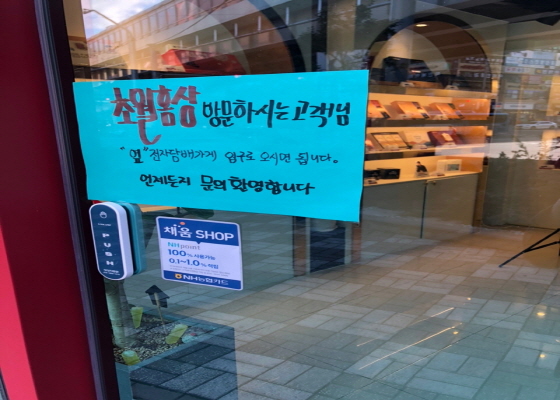 초월홍삼 방문하시는 고객님
"옆" 전자담배가게 입구로 오시면 됩니다.
언제든지 문의 환영합니다
PUSH
채움 SHOP
NHpoint
100% 사용가능
0.1~1.0% 적립
NH농협카드